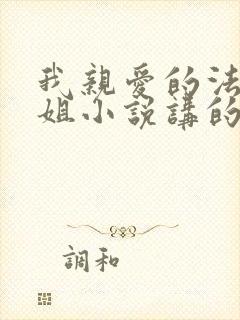 我親愛的法
姐小說講的
調和